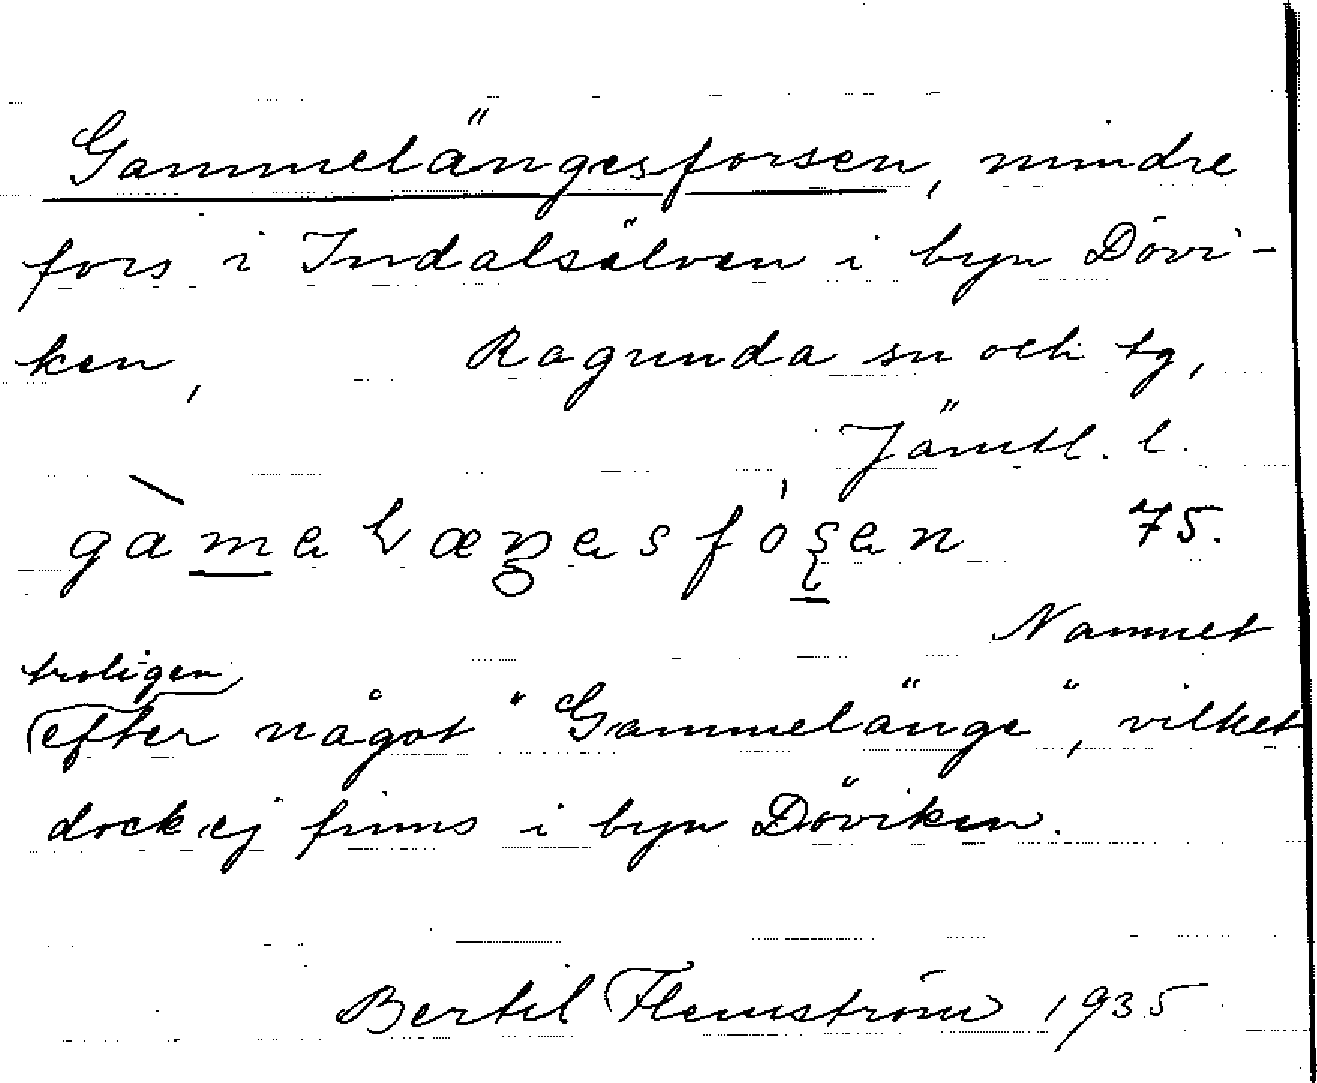 Gammelängesforsen, mindre
fors i Indalsälven i byn Dövi-
ken, Ragunda sn och tg,
Jämtl. l.
75.
Namnet
troligen
efter något "Gammelänge", vilket
dock ej finns i byn Döviken.
Bertil Flemström 1935